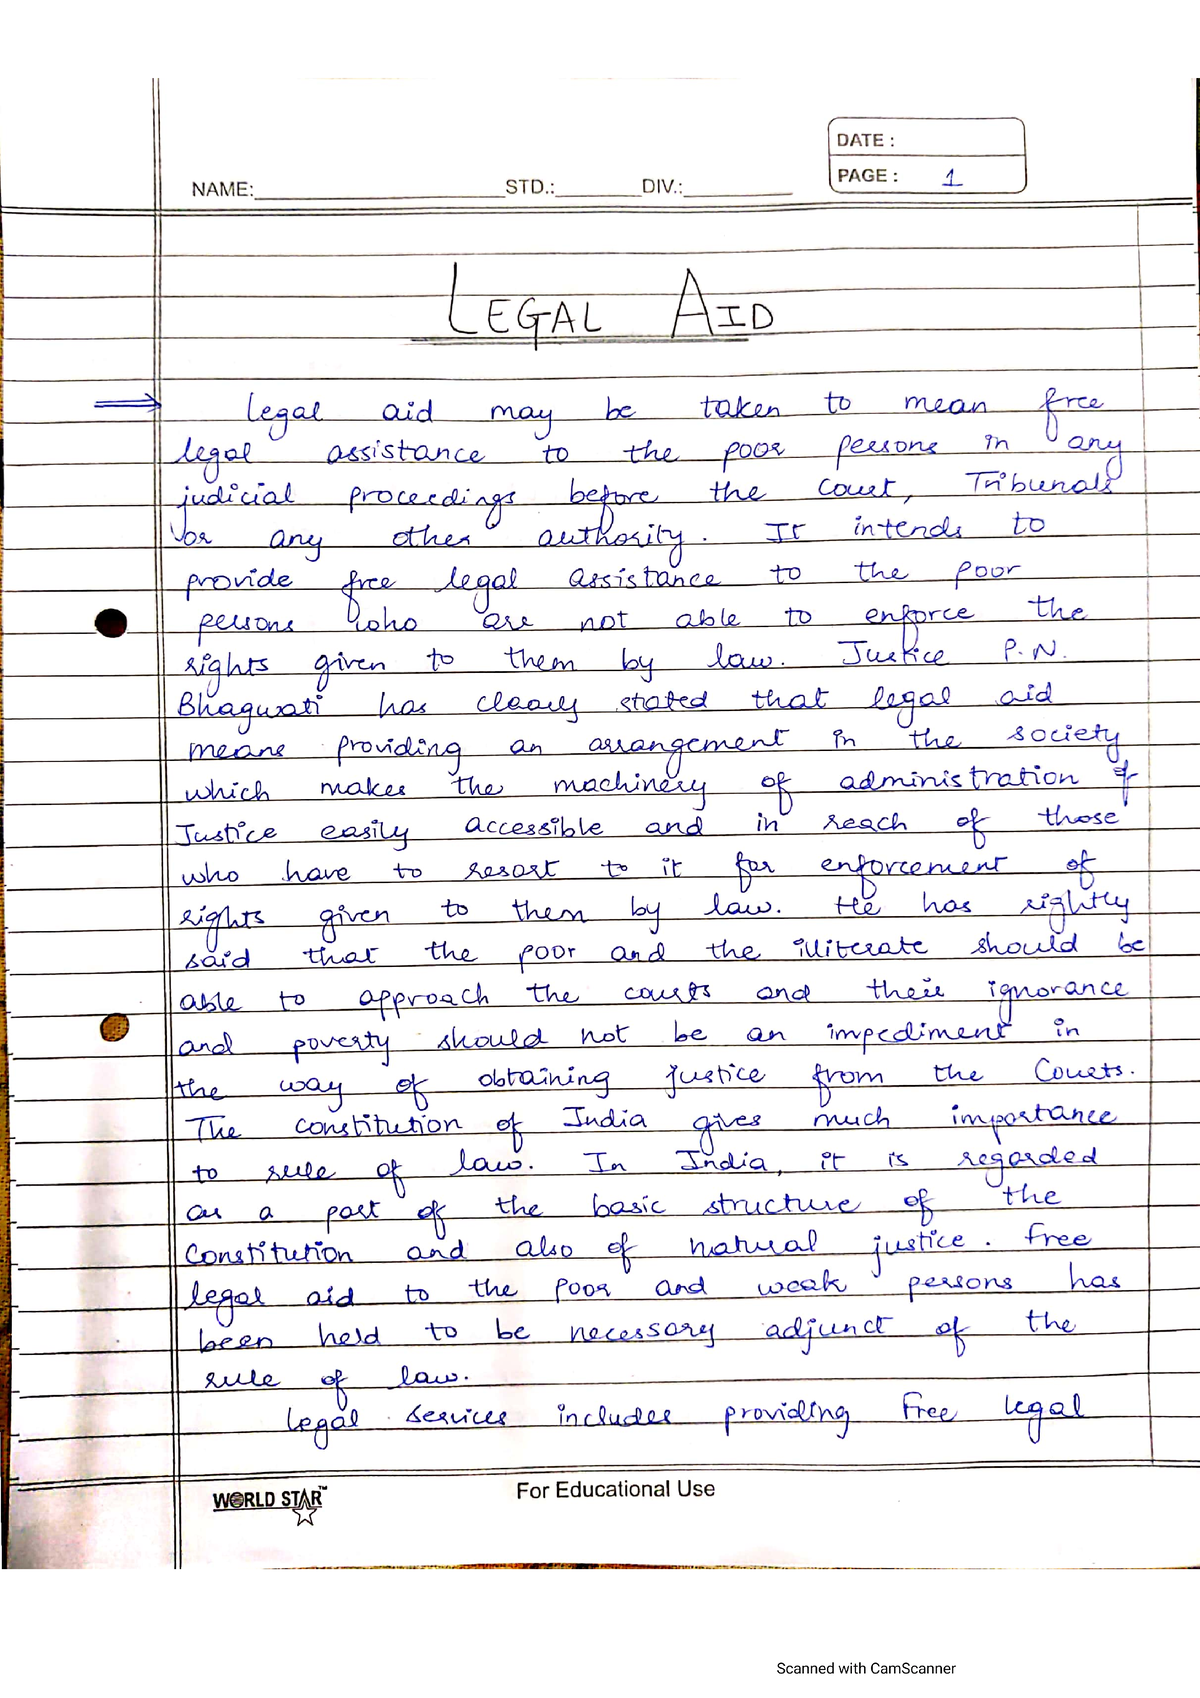 DATE :
PAGE : 1
NAME: STD.: DIV.:
LEGAL AID
Legal aid may be taken to mean free
legal assistance to the poor persons in any
judicial proceedings before the Court, Tribunals
or any other authority. It intends to
provide free legal assistance to the poor
persons who are not able to enforce the
rights given to them by law. Justice P.N.
Bhagwati has clearly stated that legal aid
means providing an arrangement in the society
which makes the machinery of administration of
Justice easily accessible and in reach of those
who have to resort to it for enforcement of
rights given to them by law. He has rightly
said that the poor and the illiterate should be
able to approach the courts and their ignorance
and poverty should not be an impediment in
the way of obtaining justice from the Courts.
The constitution of India gives much importance
to rule of law. In India, it is regarded
as a part of the basic structure of the
Constitution and also of natural justice. Free
legal aid to the poor and weak persons has
been held to be necessary adjunct of the
rule of law.
Legal services includes providing free legal
WORLD STAR™
For Educational Use
Scanned with CamScanner